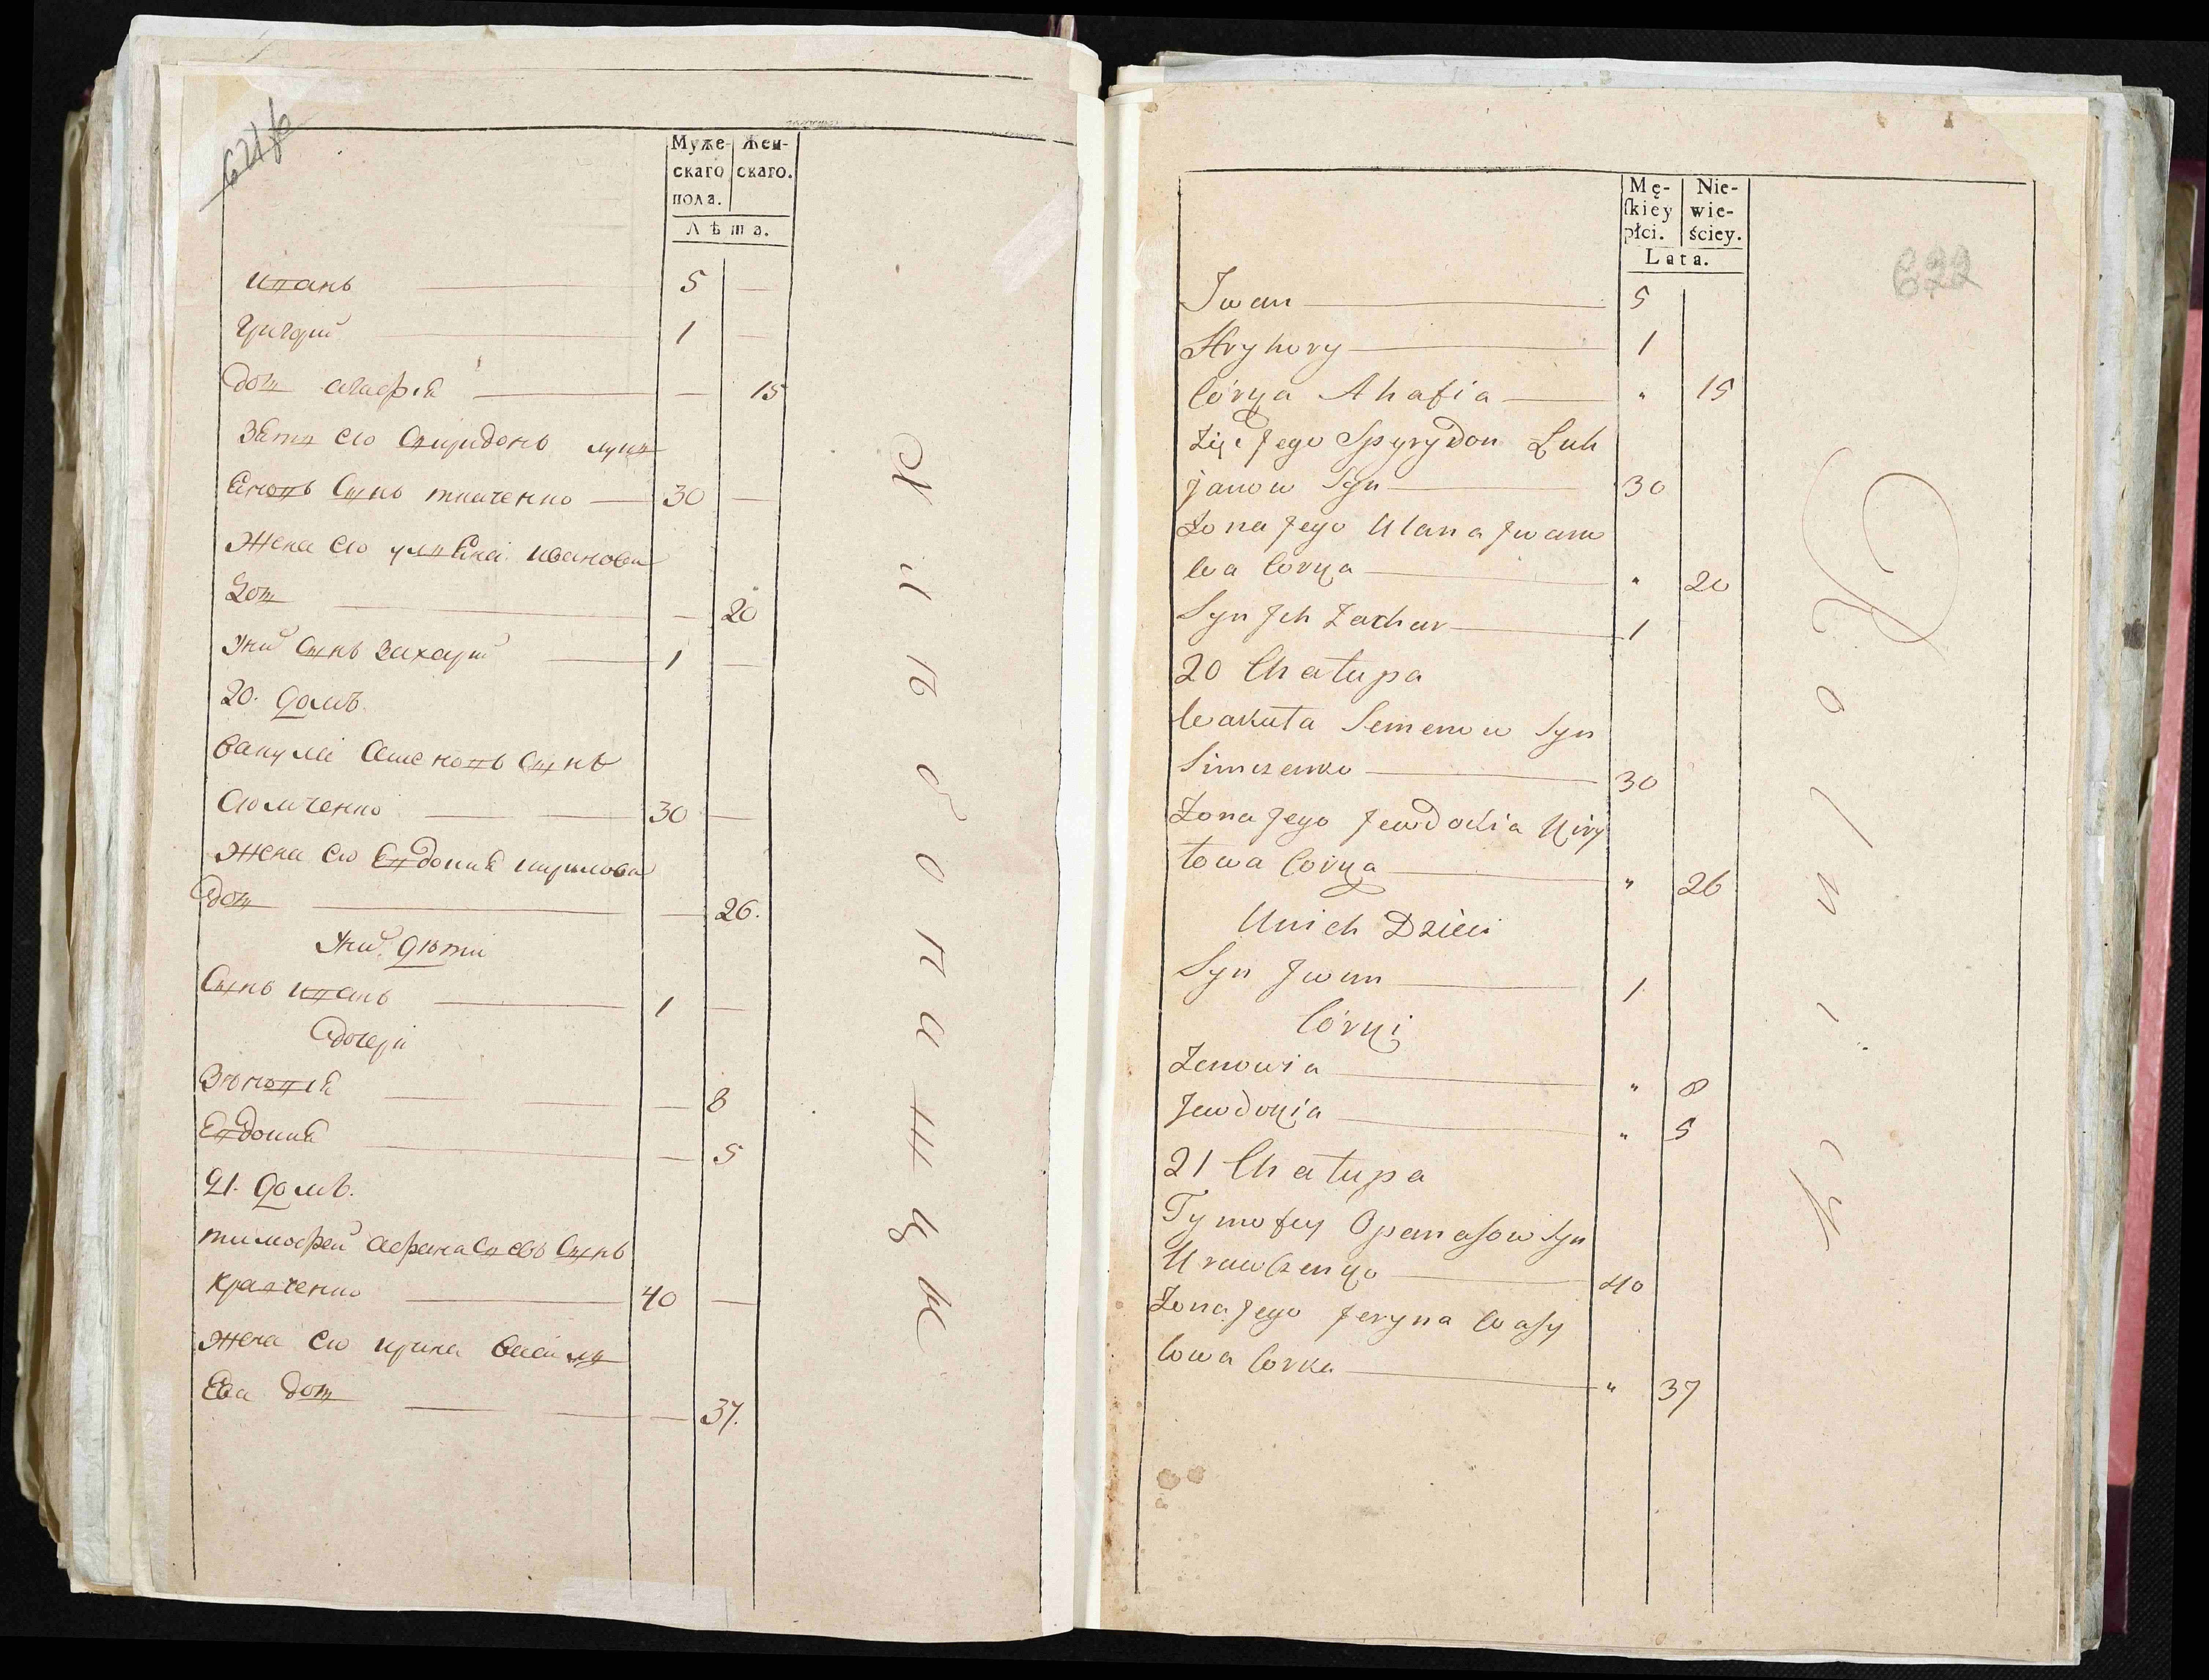 Муже-
скаго
пола.
Жен-
скаго.
Лѣта.
Иванъ 5 —
Григорий 1 —
Доч Агафия — 15
Зять его Спиридонъ Лукя
еновъ Сынъ Ткаченко 30 —
Жена его Ульена Иванова
Доч — 20
У них Сынъ Захарий 1 —
20. Домъ.
Вакула Семеновъ Сынъ
Сюмченко 30 —
Жена его Евдокия Кирилова
Доч — 26.
У них Дѣти
Сынъ Иванъ 1 —
Дочери
Зѣновия — 8
Евдокия — 5
21. Домъ.
Тимофей Афанасиевъ Сынъ
Кравченко 40 —
Жена его Ирина Василь
ева Доч — 37.
Mę-
skiey
płci.
Nie-
wie-
ściey.
Lata.
622
Jwan 5
Hryhory 1
Córka Ahafia " 15
Zięć Jego Spyrydon Luk
janow Syn 30
Żona Jego Ulana Jwano
wa Corka " 20
Syn Jch Zachar 1
20 Chałupa
Wakuła Semenow Syn
Simczenko 30
Żona Jego Jewdokia Kiry
łowa Córka " 26
U nich Dzieci
Syn Jwan 1
Córki
Zenowia " 8
Jewdokia " 5
21 Chałupa
Tymofey Opanasow Syn
Krawczenko 40
Żona Jego Jeryna Wasy
lowa Corka " 37